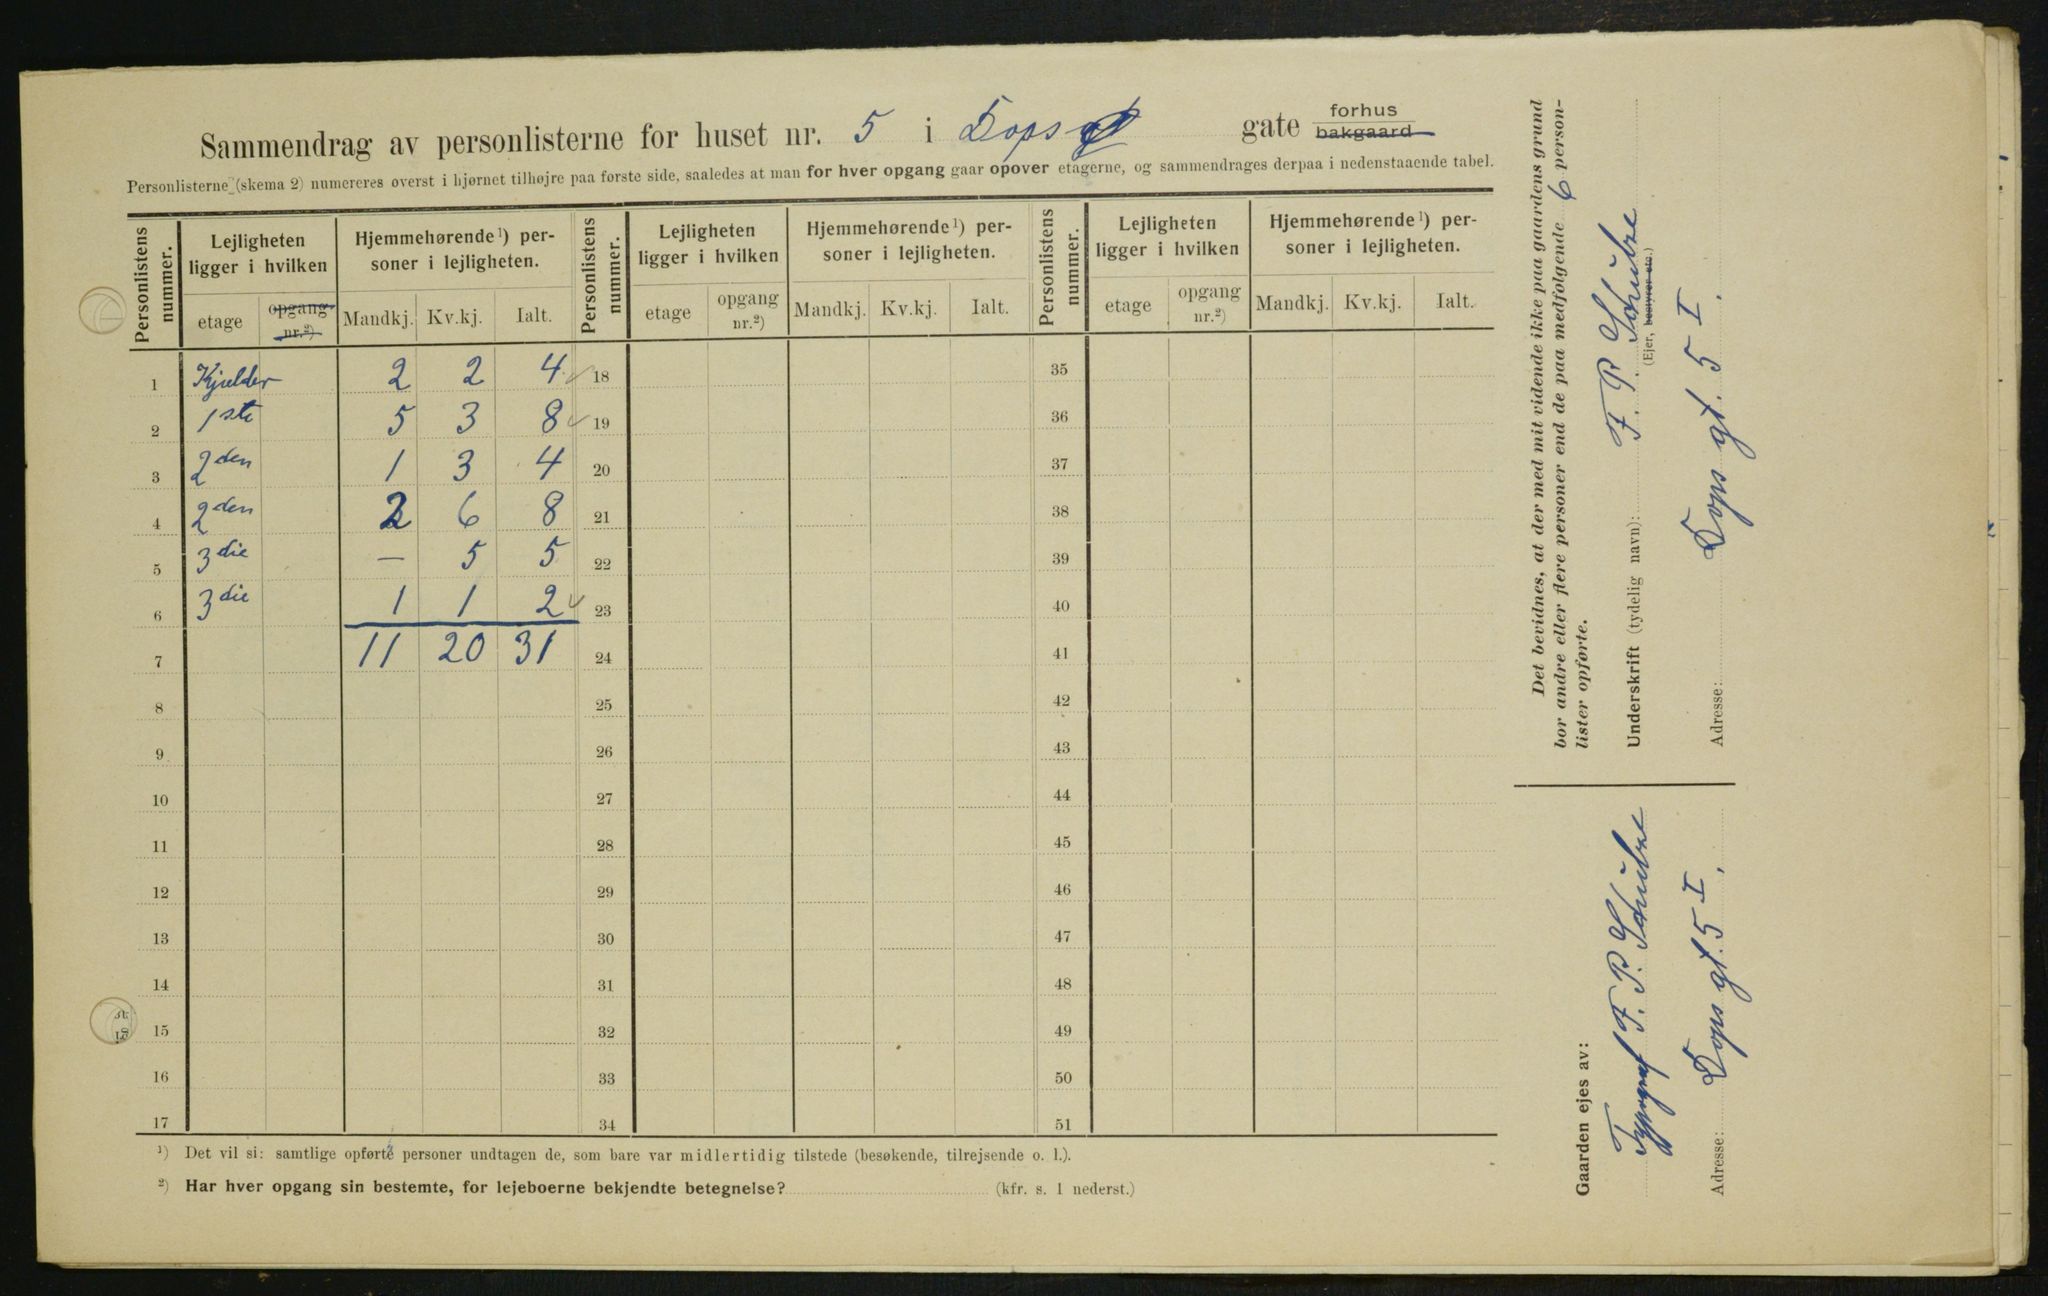 Sammendrag av personlisterne for huset nr. 5 i Dops gate forhus bakgaard
Personlisterne (skema 2) numereres øverst i hjørnet tilhøjre paa første side, saaledes at man for hver opgang gaar opover etagerne, og sammendrages derpaa i nedenstaaende tabel.
Personlistens nummer. Lejligheten ligger i hvilken Hjemmehørende¹) personer i lejligheten. Personlistens nummer. Lejligheten ligger i hvilken Hjemmehørende¹) personer i lejligheten. Personlistens nummer. Lejligheten ligger i hvilken Hjemmehørende¹) personer i lejligheten.
etage opgang nr.²) Mandkj. Kv.kj. Ialt. etage opgang nr.²) Mandkj. Kv.kj. Ialt. etage opgang nr.²) Mandkj. Kv.kj. Ialt.
1 Kjælder 2 2 4 18 35
2 1ste 5 3 8 19 36
3 2den 1 3 4 20 37
4 2den 2 6 8 21 38
5 3die — 5 5 22 39
6 3die 1 1 2 23 40
7 11 20 31 24 41
8 25 42
9 26 43
10 27 44
11 28 45
12 29 46
13 30 47
14 31 48
15 32 49
16 33 50
17 34 51
¹) Det vil si: samtlige opførte personer undtagen de, som bare var midlertidig tilstede (besøkende, tilrejsende o. l.).
²) Har hver opgang sin bestemte, for lejeboerne bekjendte betegnelse? (kfr. s. 1 nederst.)
Det bevidnes, at der med mit vidende ikke paa gaardens grund
bor andre eller flere personer end de paa medfølgende 6 person-
lister opførte.
Underskrift (tydelig navn): F. P. Schulze
(Ejer, bestyrer etc.)
Adresse: Dops gt. 5 I.
Gaarden ejes av:
Typograf F. P. Schulze
Adresse: Dops gt. 5 I.